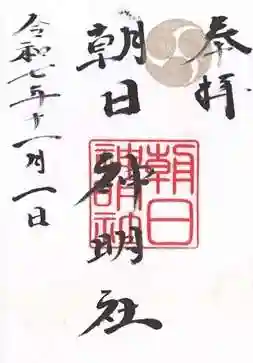 奉拝
朝日神明社
令和七年十一月一日
朝日
神明